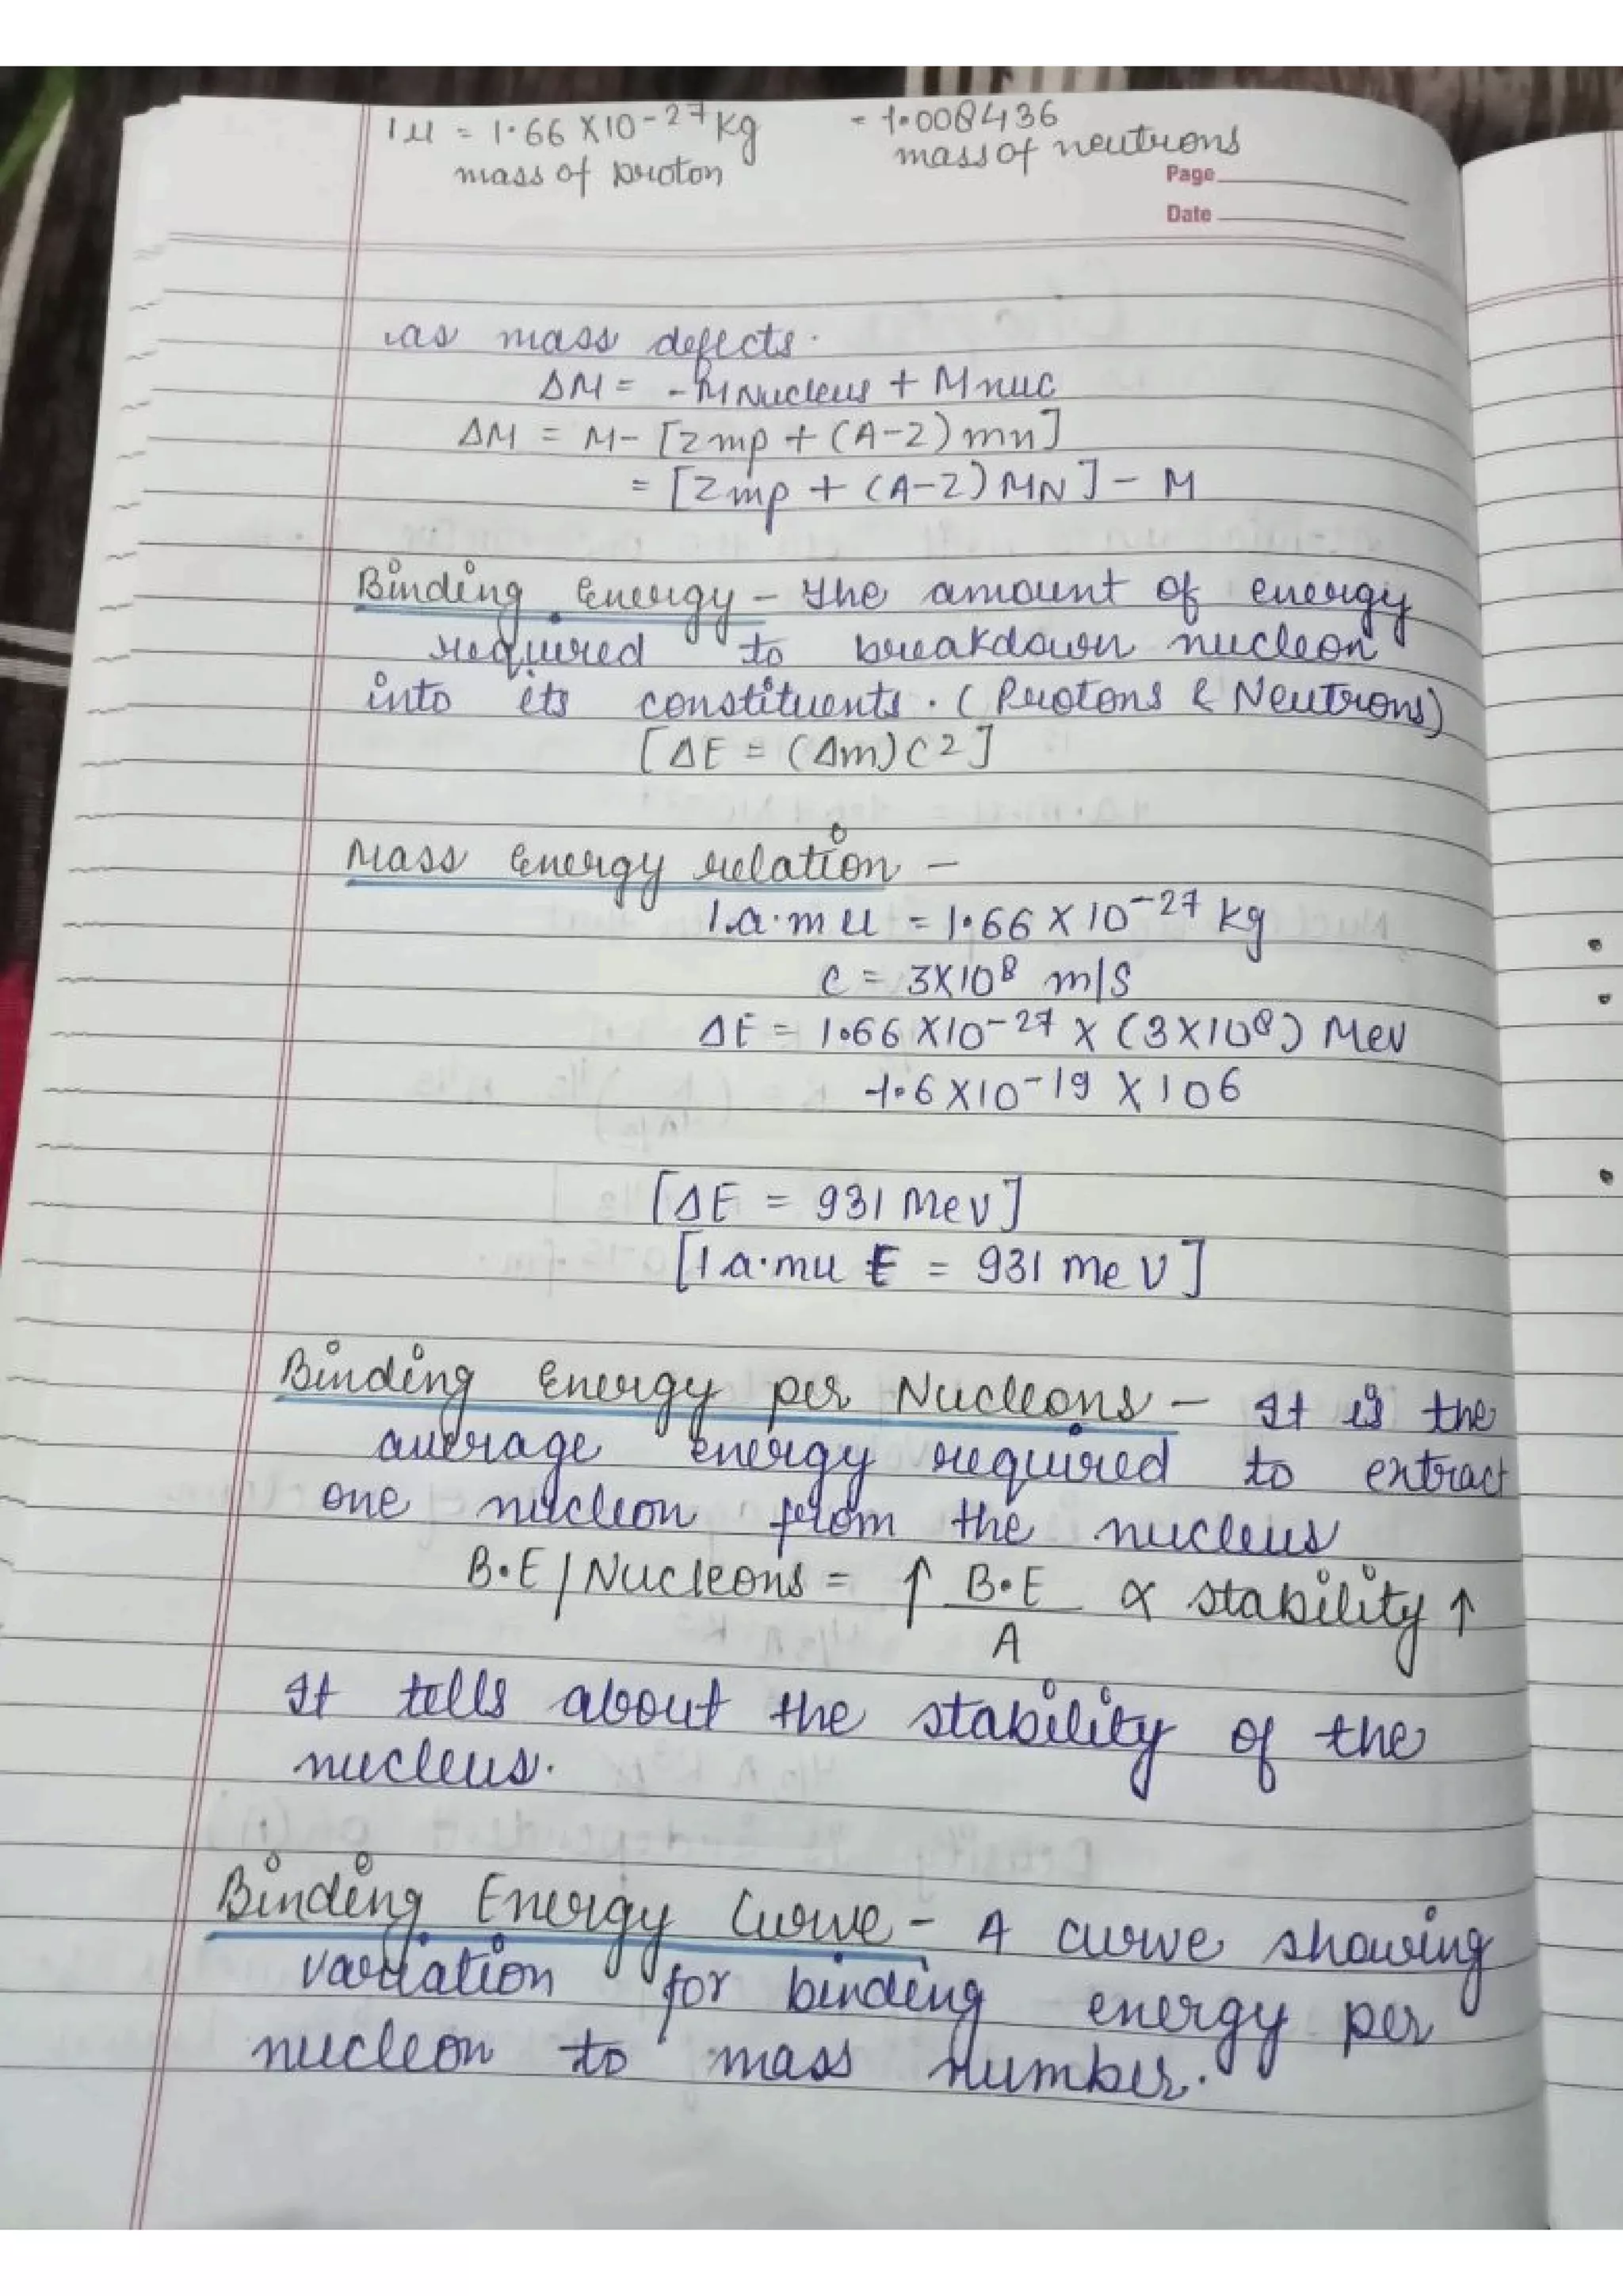 1u = 1.66 X10-27 kg = 1.008436
mass of proton mass of neutrons
Page
Date
as mass defects.
ΔM = -MNucleus + Mnuc
ΔM = M- [Zmp + (A-Z) mn]
= [Zmp + (A-Z) MN] - M
Binding Energy - The amount of energy
required to breakdown nucleon
into its constituents. (Protons & Neutrons)
[ΔE = (Δm)C2]
Mass Energy relation -
1 a.m u = 1.66 X 10-27 kg
C = 3X108 m/s
ΔE = 1.66 X10-27 X (3X108) Mev
1.6 X10-19 X 106
[ΔE = 931 Mev]
[1 a.mu E = 931 meV]
Binding Energy per Nucleons - It is the
average energy required to extract
one nucleon from the nucleus
B.E/Nucleons = ↑ B.E ∝ stability ↑
A
It tells about the stability of the
nucleus.
Binding Energy Curve - A curve showing
variation for binding energy per
nucleon to mass number.